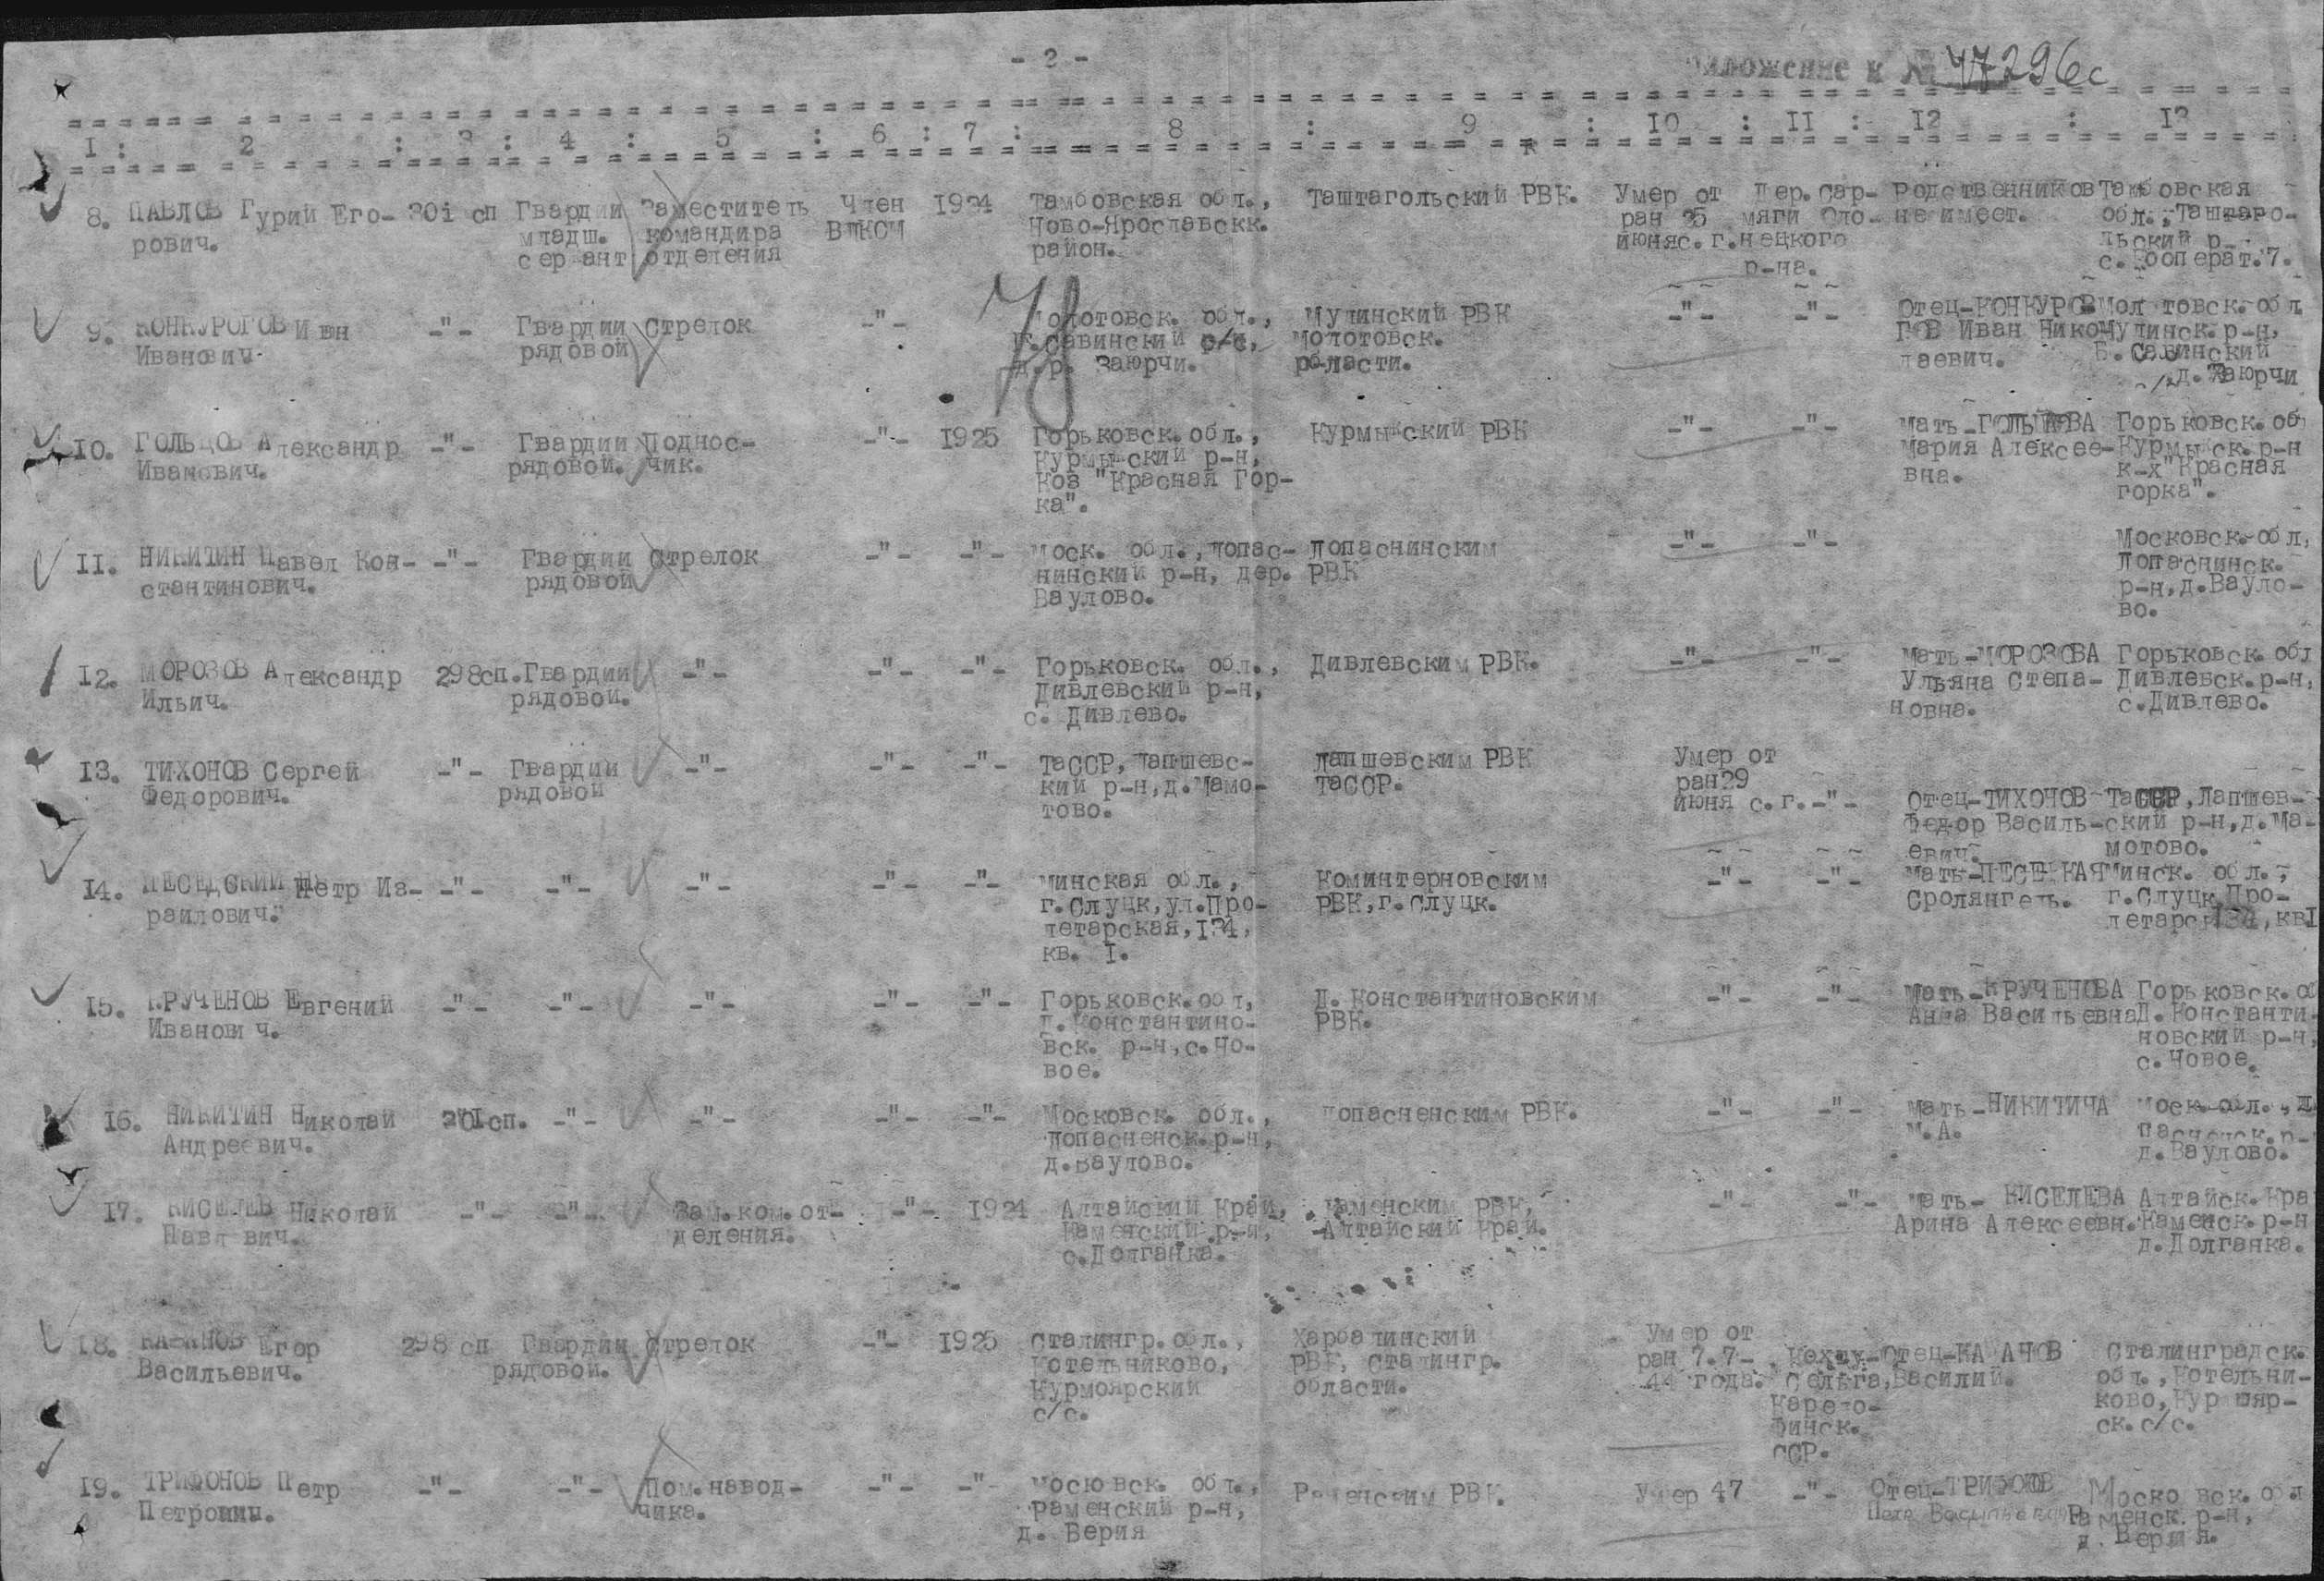 - 2 -
приложение к № 47296с
1 : 2 : 3 : 4 : 5 : 6 : 7 : 8 : 9 : 10 : 11 : 12 : 13
8. ПАВЛОВ Гурий Его- 301 сп Гвардии Заместитель Член 1924 Тамбовская обл., Таштагольский РВК. Умер от Дер. Сар- Родственников Тамбовская
рович. младш. командира ВЛКСМ Ново-Ярославскк. ран 25 мяги Оло- не имеет. обл., Таштаго-
сержант отделения район. июня с.г. нецкого льский р-
р-на. с. Кооперат.7.
9. КОНКУРОГОВ Иван -"- Гвардии Стрелок -"- Молотовск. обл., Мулинский РВК -"- -"- Отец-КОНКУРО Молотовск. обл
Иванович. рядовой Б.Савинский с/с, Молотовск. ГОВ Иван Нико Мулинск. р-н,
д.р. Заюрчи. области. лаевич. Б. Савинский
с/с д. Заюрчи
10. ГОЛЬЦОВ Александр -"- Гвардии Поднос- -"- 1925 Горьковск. обл., Курмышский РВК -"- -"- Мать-ГОЛЬЦОВА Горьковск. об
Иванович. рядовой. чик. Курмышский р-н, Мария Алексее- Курмышск. р-н
Коз "Красная Гор- вна. к-х "Красная
ка". горка".
11. НИКИТИН Павел Кон- -"- Гвардии Стрелок -"- -"- Моск. обл., Лопас- Лопаснинским -"- -"- Московск. обл,
стантинович. рядовой нинский р-н, дер. РВК Лопаснинск.
Ваулово. р-н, д. Вауло-
во.
12. МОРОЗОВ Александр 298сп. Гвардии -"- -"- -"- Горьковск. обл., Дивлевским РВК. -"- -"- Мать-МОРОЗОВА Горьковск. обл
Ильич. рядовой. Дивлевский р-н, Ульяна Степа- Дивлевск. р-н,
с. Дивлево. новна. с. Дивлево.
13. ТИХОНОВ Сергей -"- Гвардии -"- -"- -"- ТаССР, Лапшевс- Лапшевским РВК Умер от
Федорович. рядовой кий р-н, д. Мамо- ТаССР. ран 29
тово. июня с.г. -"- Отец-ТИХОНОВ ТаССР, Лапшев-
Федор Василь- ский р-н, д. Ма-
евич. мотово.
14. ПЕСЕЦСКИЙ Петр Из- -"- -"- -"- -"- -"- Минская обл., Коминтерновским -"- -"- Мать- Минск. обл.,
раилович. г. Слуцк, ул. Про- РВК, г. Слуцк. Сролянгель. г. Слуцк, Про-
летарская, 134, летарск 134, кв1
кв. 1.
15. КРУЧЕНОВ Евгений -"- -"- -"- -"- -"- Горьковск. обл, Д. Константиновским -"- -"- Мать-КРУЧЕНОВА Горьковск. о
Иванович. Д. Константино- РВК. Анна Васильевна Д. Константи-
вск. р-н, с. Но- новский р-н,
вое. с. Новое.
16. НИКИТИН Николай 301сп. -"- -"- -"- -"- Московск. обл., Лопасненским РВК. -"- -"- Мать-НИКИТИНА Моск. обл.,
Андреевич. Лопасненск. р-н, М.А. пасненск. р-
д. Ваулово. д. Ваулово.
17. КИСЕЛЕВ Николай -"- -"- Зам. ком. от- -"- 1924 Алтайский Край, Каменским РВК, -"- -"- Мать- КИСЕЛЕВА Алтайск. Кра
Павлович. деления. Каменский р-н, Алтайский край. Арина Алексеевн. Каменск. р-н
с. Долганка. д. Долганка.
18. Егор 298 сп Гвардии Стрелок -"- 1925 Сталингр. обл., Харбалинский Умер от
Васильевич. рядовой. Котельниково, РВК, Сталингр. ран 7.7- Отец- Сталинградск.
Курмоярский области. 44 года. Сельга, Василий. обл., Котельни-
с/с. Карело- ково, Курмояр-
финск. ск. с/с.
ССР.
19. ТРИФОНОВ Петр -"- -"- Пом. навод- -"- -"- Московск. обл., Раменским РВК. Умер 47 -"- Отец-ТРИФОНОВ Московск. обл
Петрович. чика. Раменский р-н, Петр Васильевич Раменск. р-н,
д. Верия д. Верия.